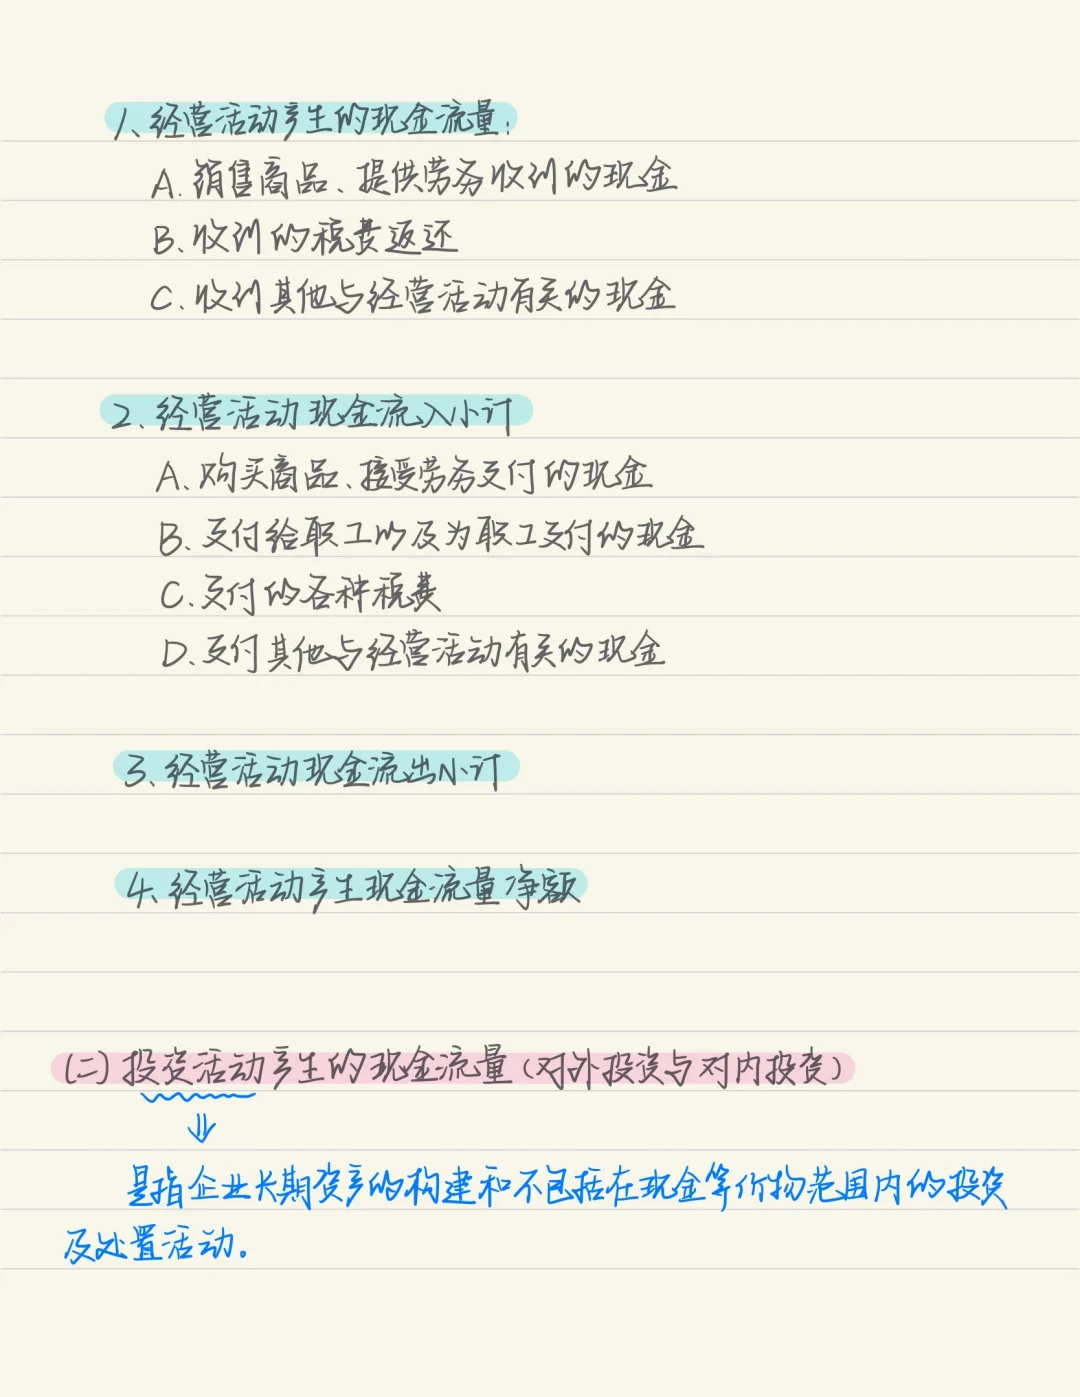 1、经营活动产生的现金流量：
A.销售商品、提供劳务收到的现金
B、收到的税费返还
C.收到其他与经营活动有关的现金
2、经营活动现金流入小计
A、购买商品、接受劳务支付的现金
B.支付给职工以及为职工支付的现金
C.支付的各种税费
D、支付其他与经营活动有关的现金
3、经营活动现金流出小计
4、经营活动产生现金流量净额
(二)投资活动产生的现金流量(对外投资与对内投资)
是指企业长期资产的构建和不包括在现金等价物范围内的投资
及处置活动。